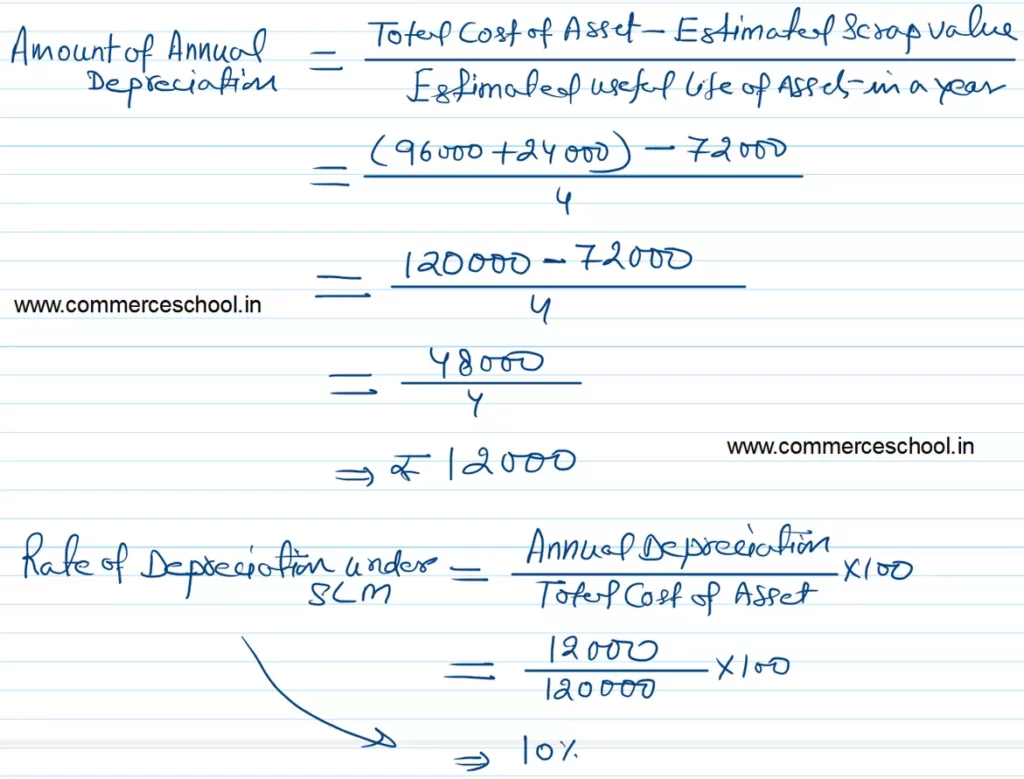 Amount of Annual Depreciation = Total Cost of Asset – Estimated Scrap value / Estimated useful life of Asset in a year
= (96000 + 24000) – 72000 / 4
= 120000 – 72000 / 4
www.commerceschool.in
= 48000 / 4
www.commerceschool.in
⇒ ₹ 12000
Rate of Depreciation under SLM = Annual Depreciation / Total Cost of Asset × 100
= 12000 / 120000 × 100
⇒ 10%